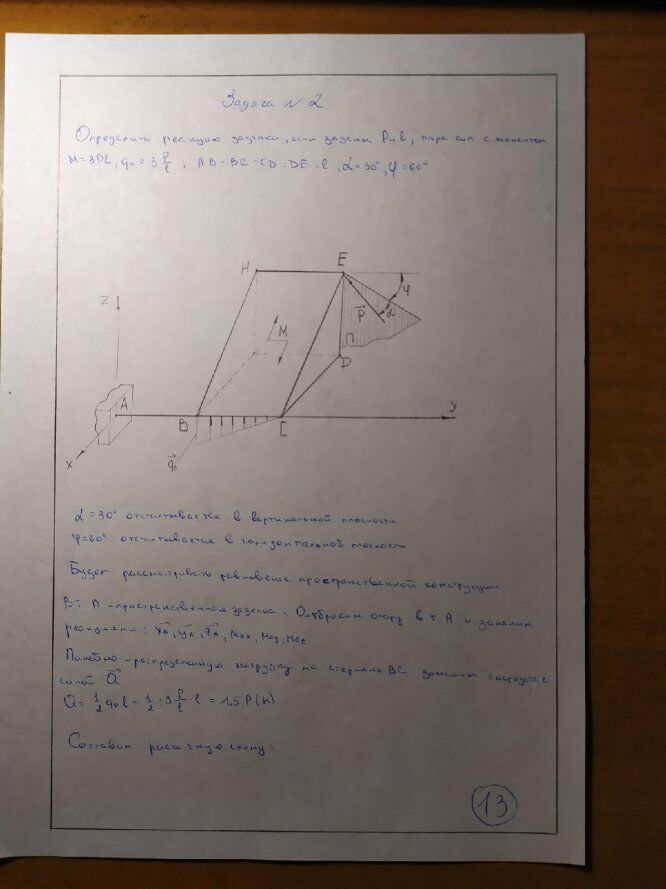 Задача №2
Определить реакцию заделки, если заданы P и l, пара сил с моментом
M=3Pl, q₀ = 3 P/l ; AB=BC=CD=DE=l, α=30°, φ=60°
H
E
Z
φ
α
P
M
П
D
A
B
C
У
X
q₀
α=30° отсчитывается в вертикальной плоскости
φ=60° отсчитывается в горизонтальной плоскости
Будем рассматривать равновесие пространственной конструкции
В т. А - пространственная заделка. Отбросим опору в т. А и заменим
реакциями:
Линейно-распределенную нагрузку на стержень BC заменим
силой Q
Q = 1/2 q₀l = 1/2 · 3 P/l · l = 1,5 P (Н)
Составим расчетную схему:
13